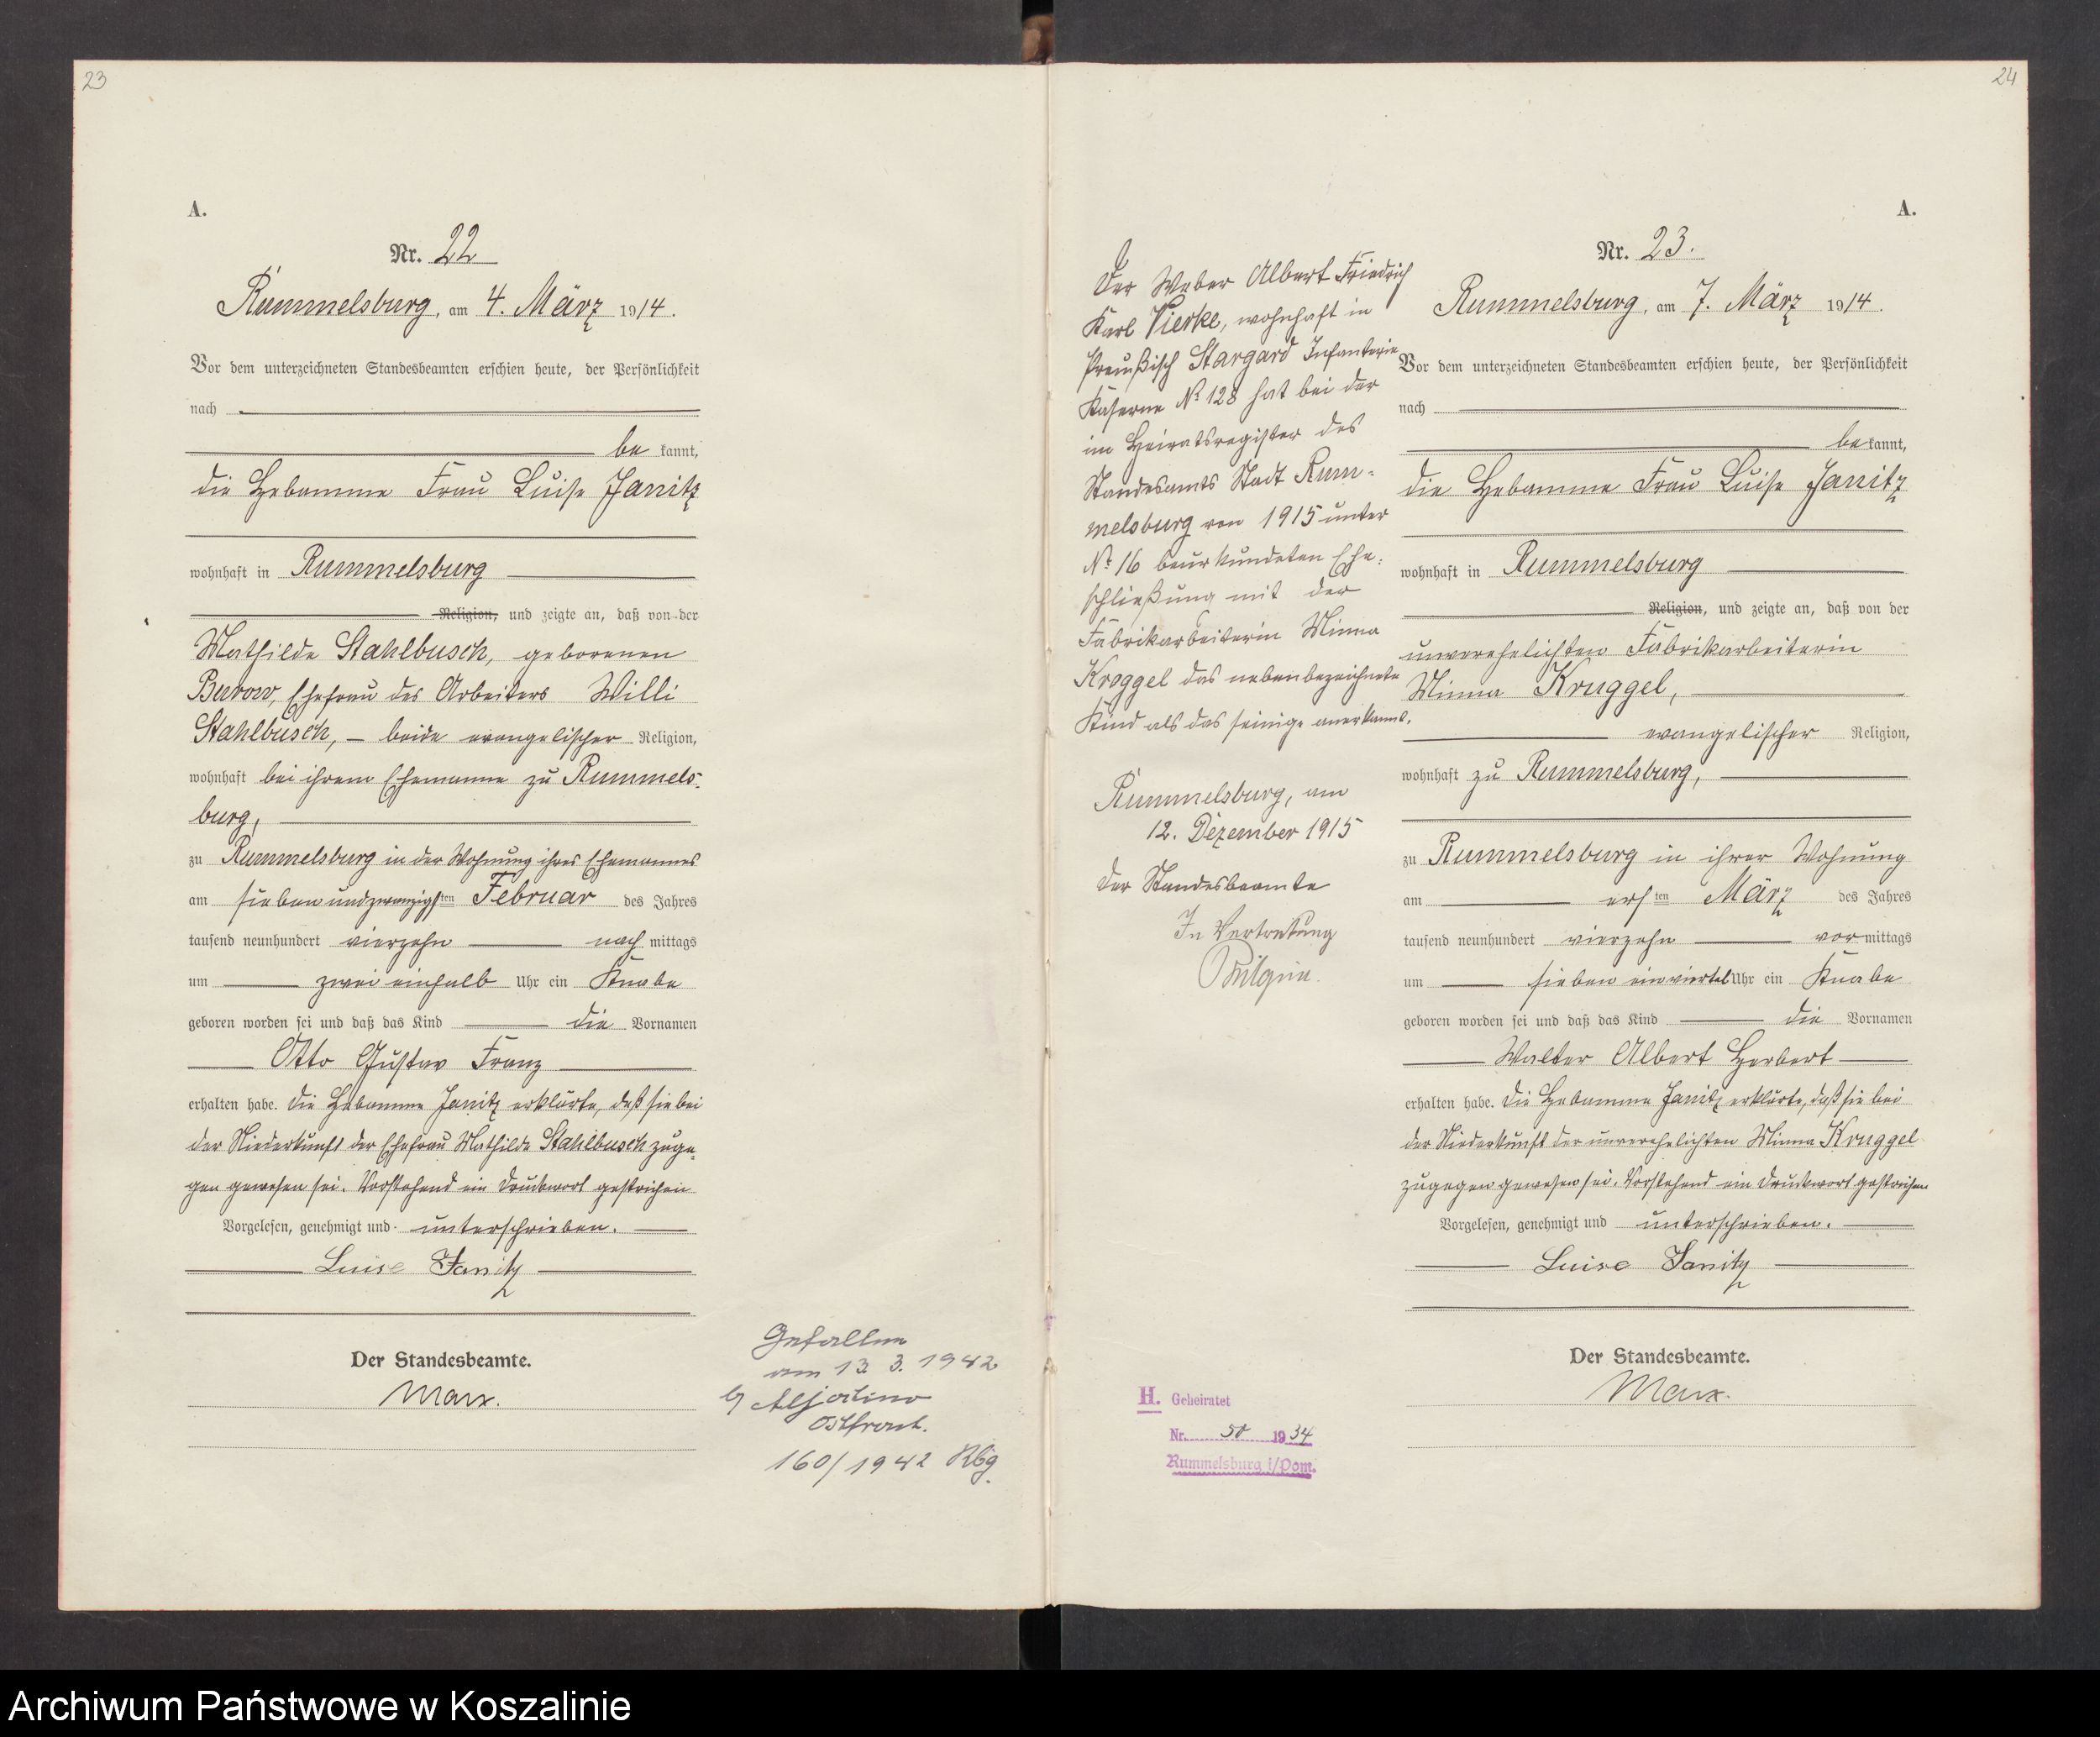 23
A.
Nr. 22
Rummelsburg, am 4. März 1914.
Vor dem unterzeichneten Standesbeamten erschien heute, der Persönlichkeit
nach
be kannt,
die Hebamme Frau Luise Janitz
wohnhaft in Rummelsburg
Religion, und zeigte an, daß von der
Mathilde Stahlbusch, geborenen
Burow, Ehefrau des Arbeiters Willi
Stahlbusch, – beide evangelischer Religion,
wohnhaft bei ihrem Ehemanne zu Rummels-
burg,
zu Rummelsburg in der Wohnung ihres Ehemannes
am siebenundzwanzigsten Februar des Jahres
tausend neunhundert vierzehn nach mittags
um zwei einhalb Uhr ein Knabe
geboren worden sei und daß das Kind die Vornamen
Otto Gustav Franz
erhalten habe. Die Hebamme Janitz erklärte, daß sie bei
der Niederkunft der Ehefrau Mathilde Stahlbusch zuge-
gen gewesen sei. Vorstehend ein Druckwort gestrichen
Vorgelesen, genehmigt und unterschrieben.
Luise Janitz
Der Standesbeamte.
Marx.
Gefallen
am 13. 3. 1942
Ostfront.
160/1942 Rbg.
24
A.
Nr. 23.
Rummelsburg, am 7. März 1914.
Vor dem unterzeichneten Standesbeamten erschien heute, der Persönlichkeit
nach
be kannt,
die Hebamme Frau Luise Janitz
wohnhaft in Rummelsburg
Religion, und zeigte an, daß von der
unverehelichten Fabrikarbeiterin
Minna Kruggel,
evangelischer Religion,
wohnhaft zu Rummelsburg,
zu Rummelsburg in ihrer Wohnung
am ersten März des Jahres
tausend neunhundert vierzehn vor mittags
um sieben einviertel Uhr ein Knabe
geboren worden sei und daß das Kind die Vornamen
Walter Albert Herbert
erhalten habe. Die Hebamme Janitz erklärte, daß sie bei
der Niederkunft der unverehelichten Minna Kruggel
zugegen gewesen sei. Vorstehend ein Druckwort gestrichen.
Vorgelesen, genehmigt und unterschrieben.
Luise Janitz
Der Standesbeamte.
Marx.
Der Weber Albert Friedrich
Karl Vierke, wohnhaft in
Preußisch Stargard Infanterie
Kaserne № 128 hat bei der
im Heiratsregister des
Standesamts Stadt Rum-
melsburg von 1915 unter
№ 16 beurkundeten Ehe-
schließung mit der
Fabrikarbeiterin Minna
Kroggel das nebenbezeichnete
Kind als das seinige anerkannt.
Rummelsburg, am
12. Dezember 1915
Der Standesbeamte
In Vertretung
H. Geheiratet
Nr. 50 1934
Rummelsburg i/Pom.
Archiwum Państwowe w Koszalinie